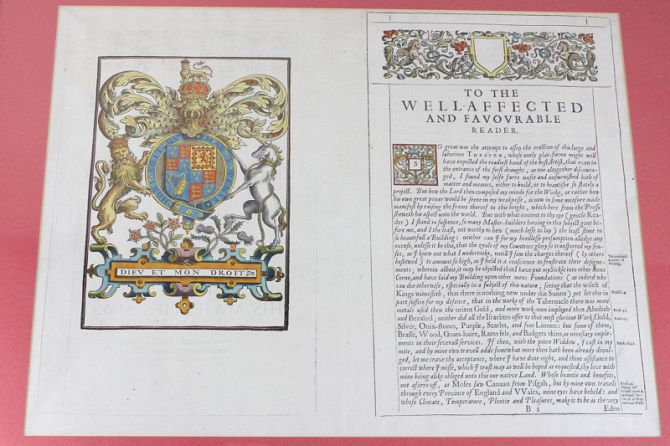 DIEV ET MON DROIT
TO THE
WELL-AFFECTED
AND FAVOVRABLE
READER.
SO great was the attempt to assay the erection of this large and
laborious THEATRE, whose onely plat-forme might well
have expected the readiest hand of the best Artist, that even in
the entrance of the first draught, as one altogether discoura-
ged, I found my selfe farre unfit and unfurnished both of
matter and meanes, either to build, or to beautifie so stately a
project. But how the Lord then composed my minde for the Worke, or rather how
his own great power would be seene in my weaknesse, is now in some measure made
manifest by raising the frame thereof to this height, which here from the Presse
sheweth his aspect unto the world. But with what content to thy eye (gentle Rea-
der) I stand in suspence, so many Master-builders having in this subject gone be-
fore me, and I the least, not worthy to hew (much lesse to lay) the least stone in
so beautifull a Building: neither can I for my bouldnesse presumption alledge any
excuse, unlesse it be this, that the zeale of my Countries glory so transported my sen-
ses, as I knew not what I undertooke, untill I saw the charges thereof (by others
bestowed) to amount so high, as I held it a conscience to frustrate their designe-
ments; wherein albeit, it may be objected that I have put my sickle into other mens
Corne, and have laid my Building upon other mens Foundations (as indeed who
can doe otherwise, especially in a subject of this nature, seeing that the wisest of
Kings witnesseth, that there is nothing new under the Sunne) yet let this in
part suffice for my defence, that in the worke of the Tabernacle there was more
metals used then the orient Gold, and more work-men imployed then Aholiab
and Bezaleel; neither did all the Israelites offer to that most glorious Work, Gold,
Silver, Onix-stones, Purple, Scarlet, and fine Linnen: but some of them,
Brasse, Wood, Goats-haire, Rams fels, and Badgers skins, as necessary imple-
ments in their severall services. If then, with the poore Widdow, I cast in my
mite, and by mine own travell adde somewhat more then hath been already divul-
ged, let me crave thy acceptance, where I have done right, and thine assistance to
correct where I misse, which I trust may as well be hoped as requested, thy love with
mine being alike obliged unto this our native Land. Whose beautie and benefits,
not afarre off, as Moses saw Canaan from Pisgah, but by mine own travels
through every Province of England and VVales, mine eyes have beheld: and
whose Climate, Temperature, Plentie and Pleasures, make it to be as the very
B 2
Eden